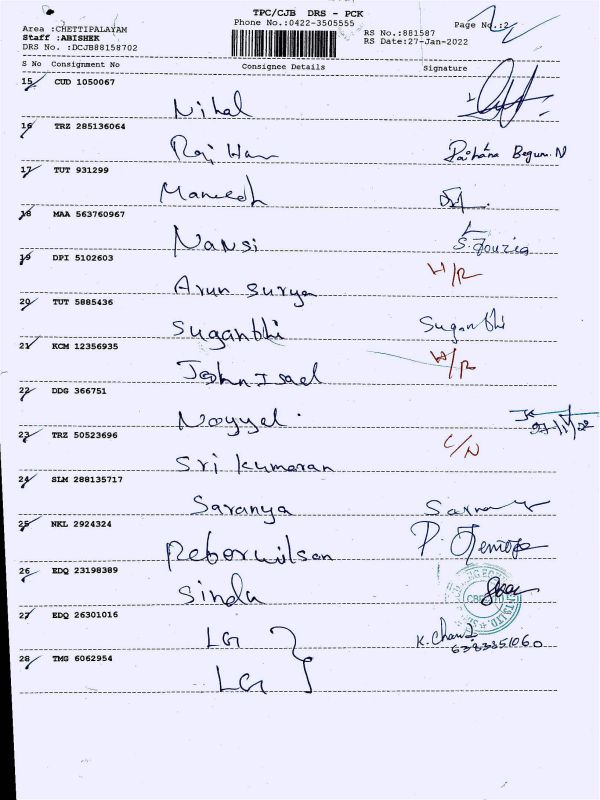 TPC/CJB DRS - PCK
Phone No.:0422-3505555
Page No.:2
Area :CHETTIPALAYAM
Staff :ABISHEK
DRS No. :DCJB88158702
RS No.:881587
RS Date:27-Jan-2022
S No Consignment No Consignee Details Signature
15 CUD 1050067
Nihal
16 TRZ 285136064
Raihana Begum.N
17 TUT 931299
18 MAA 563760967
Nansi S.Fouzia
19 DPI 5102603
H/R
Arun Surya
20 TUT 5885436
Suganthi Suganthi
21 KCM 12356935
H/R
John Isael
22 DDG 366751
Noyyel.
23 TRZ 50523696
C/N
Sri kumaran
24 SLM 288135717
Saranya
25 NKL 2924324
26 EDQ 23198389
27 EDQ 26301016
LG
6383351060
28 TMG 6062954
LG